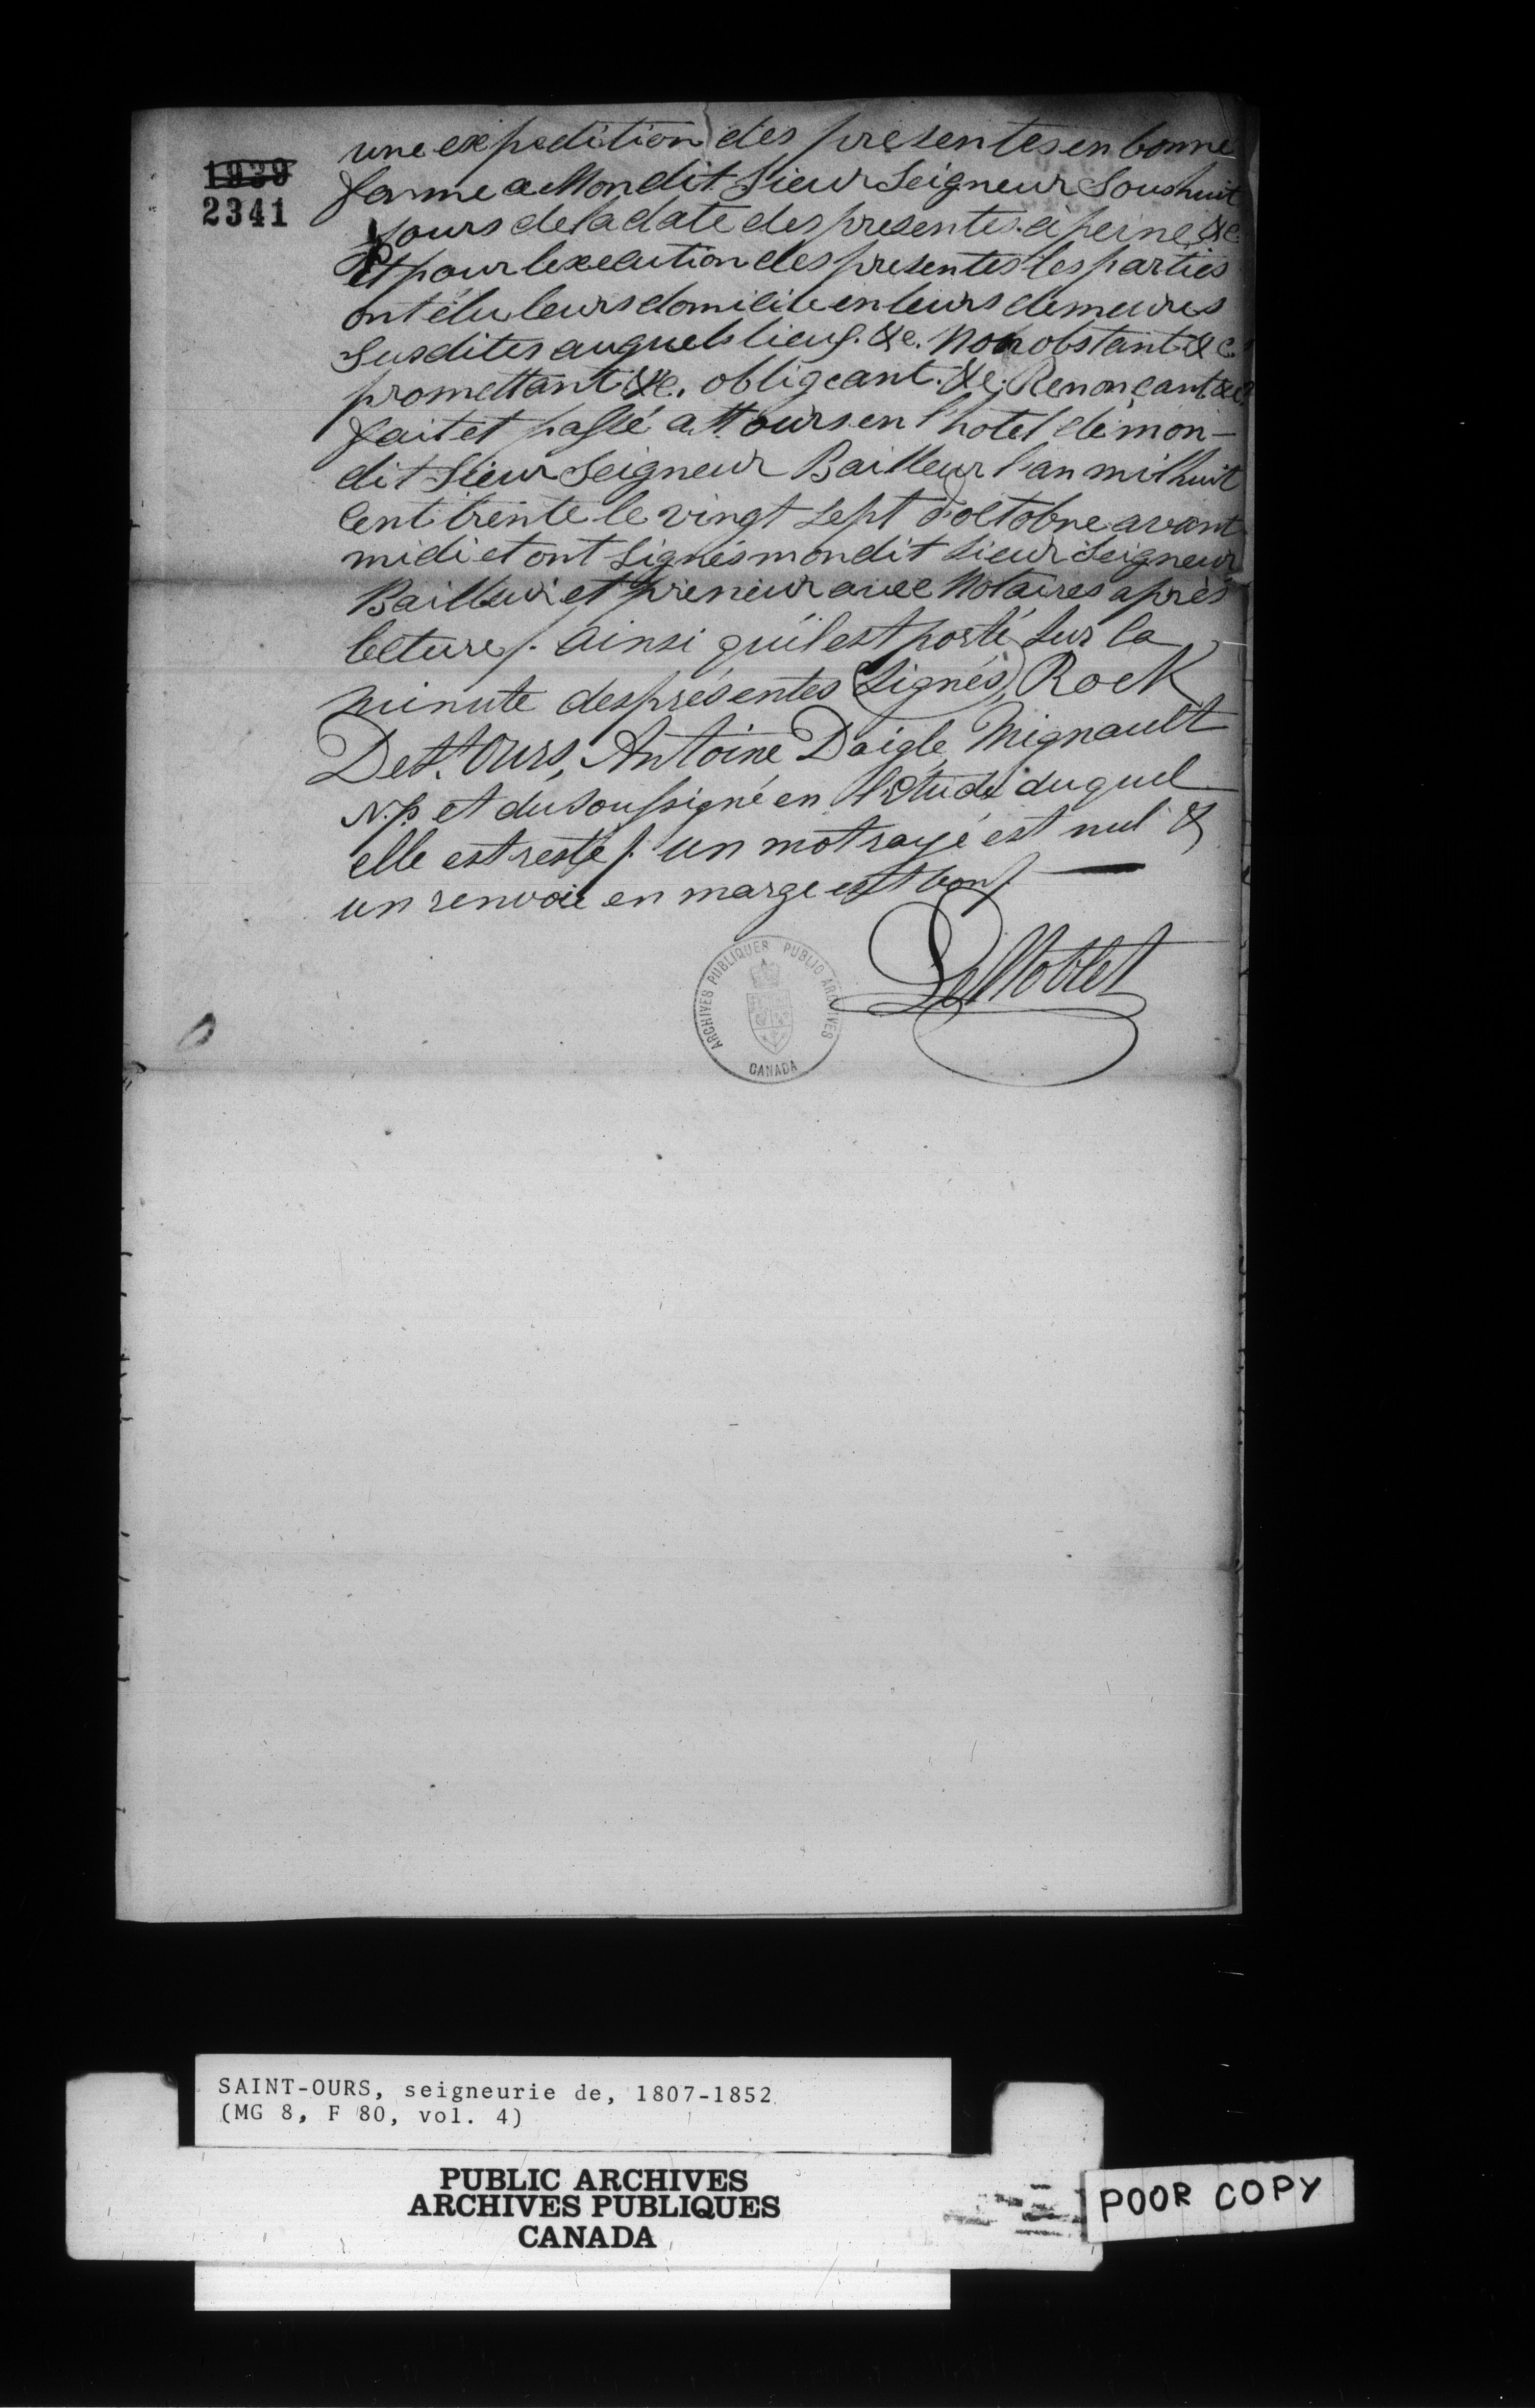 1939
2341
une expedition des presentes en bonne
forme a Mondit Sieur Seigneur Sous huit
jours de la date des presentes. a peine &c.
Et pour lexecution des presentes les parties
ont élu leurs domicile en leurs demeures
Susdites auquels lieux. &c. Nonobstant &c.
promettant &c. obligeant. &c. Renonçant &c.
fait et passé a St. ours en l'hotel de mon-
dit Sieur Seigneur Bailleur l'an mil huit
Cent trente le vingt Sept d'octobre avant
midi et ont Signés mondit Sieur Seigneur
Bailleur et preneur avec Notaires après
lecture /. ainsi qu'il est porté sur la
minute des présentes (Signés) Rock
De St. Ours, Antoine Daigle, Mignault
N.p. et du Soussigné en l'Etude duquel
elle est resté /. un mot rayé est nul &
un renvoie en marge est bon /. —
ARCHIVES PUBLIQUES PUBLIC ARCHIVES
CANADA
SAINT-OURS, seigneurie de, 1807-1852
(MG 8, F 80, vol. 4)
PUBLIC ARCHIVES
ARCHIVES PUBLIQUES
CANADA
POOR COPY